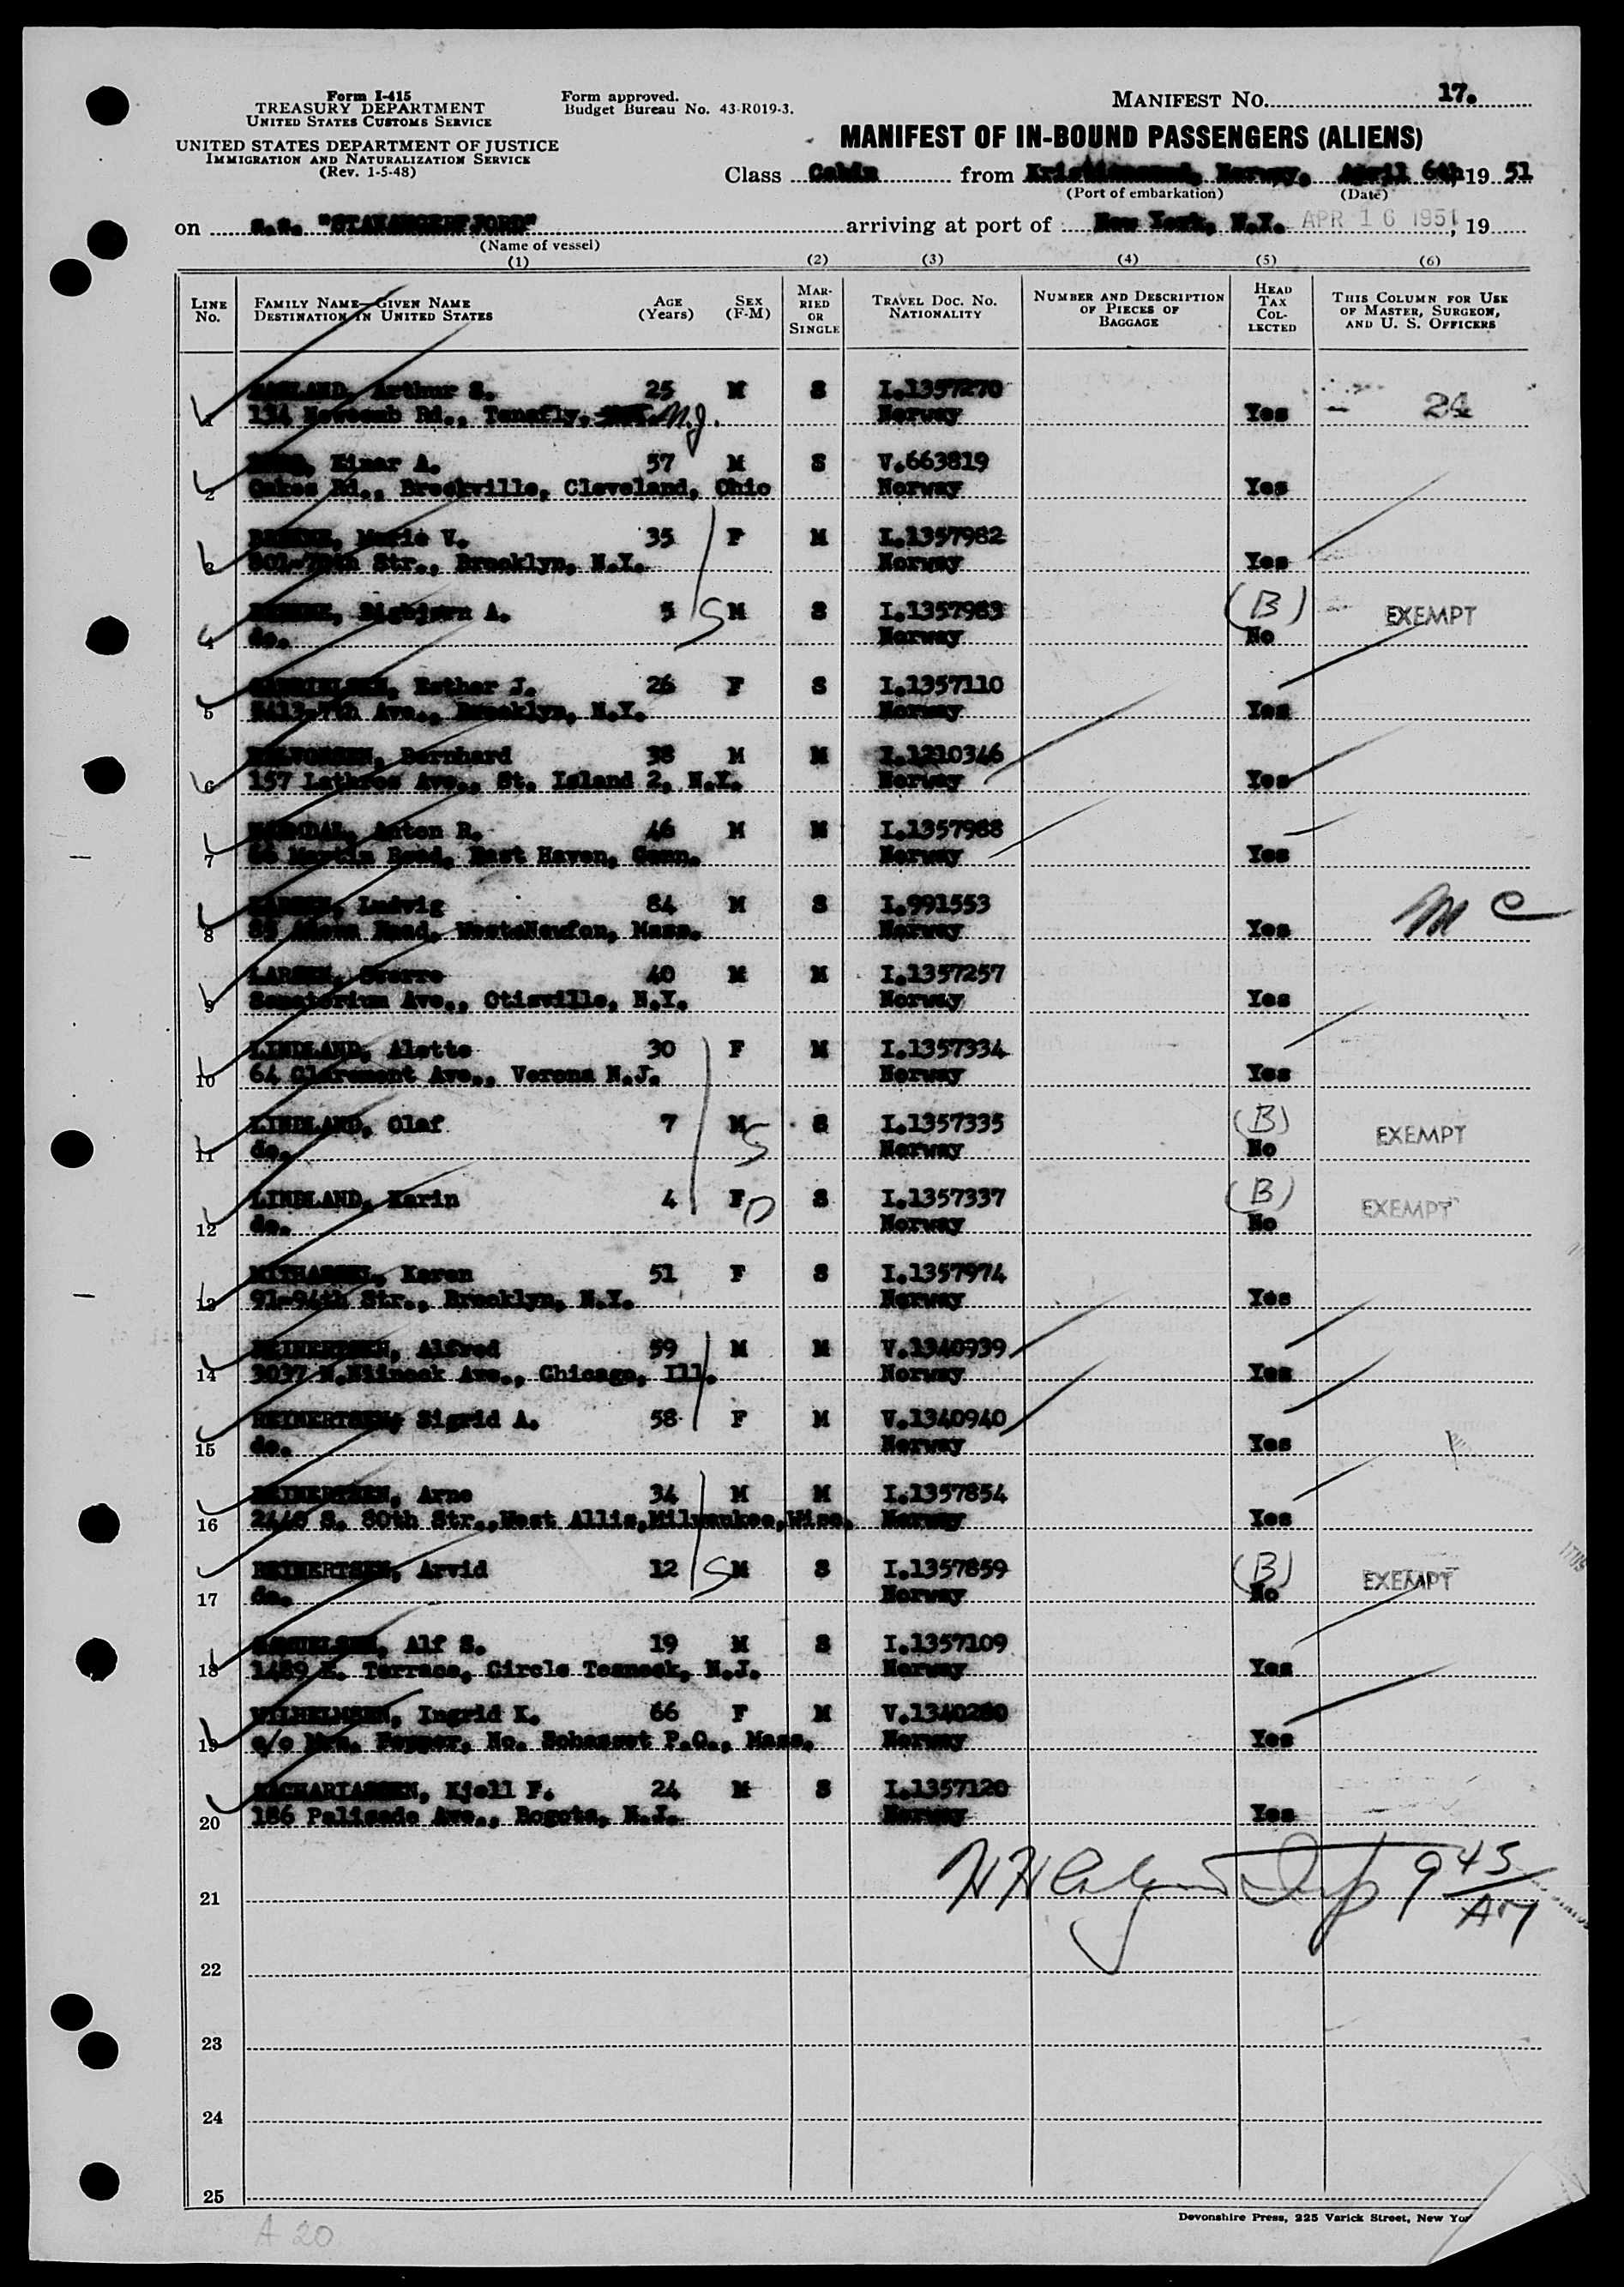 Form I-415
TREASURY DEPARTMENT
UNITED STATES CUSTOMS SERVICE
UNITED STATES DEPARTMENT OF JUSTICE
IMMIGRATION AND NATURALIZATION SERVICE
(Rev. 1-5-48)
Form approved.
Budget Bureau No. 43-R019-3.
MANIFEST NO. 17.
MANIFEST OF IN-BOUND PASSENGERS (ALIENS)
Class Cabin from Kristiansand, Norway, April 6th 19 51
(Port of embarkation) (Date)
on s.s. "STAVANGERFJORD" arriving at port of New York, N.Y. APR 16 1951, 19
(Name of vessel)
(1) (2) (3) (4) (5) (6)
LINE No. FAMILY NAME—GIVEN NAME DESTINATION IN UNITED STATES AGE (Years) SEX (F-M) MARRIED OR SINGLE TRAVEL DOC. NO. NATIONALITY NUMBER AND DESCRIPTION OF PIECES OF BAGGAGE HEAD TAX COLLECTED THIS COLUMN FOR USE OF MASTER, SURGEON, AND U. S. OFFICERS
Arthur S. 25 M S I.1357270
1 134 Newcomb Rd., Tenafly, N.J. Norway Yes – 24
Einar A. 57 M S V.663819
2 Oakes Rd., Breckville, Cleveland, Ohio Norway Yes
Marie V. 35 F M I.1357982
3 Str., Brooklyn, N.Y. Norway Yes
Sigbjørn A. 5 M S I.1357983 (B) EXEMPT
4 do. Norway No
GABRIELSEN, Esther J. 26 F S I.1357110
5 5413-7th Ave., Brooklyn, N.Y. Norway Yes
HALVORSEN, Bernhard 38 M M I.1210346
6 157 Lathrop Ave., St. Island 2, N.Y. Norway Yes
Anton R. 46 M M I.1357988
7 Martin Road, East Haven, Conn. Norway Yes
LARSEN, Ludvig 84 M S I.991553
8 Road, West Newton, Mass. Norway Yes M C
LARSEN, Sverre 40 M M I.1357257
9 Sanatorium Ave., Otisville, N.Y. Norway Yes
LINDLAND, Alette 30 F M I.1357334
10 64 Claremont Ave., Verona N.J. Norway Yes
LINDLAND, Olaf 7 M S I.1357335 (B) EXEMPT
11 do. Norway No
LINDLAND, Karin 4 F S I.1357337 (B) EXEMPT
12 do. Norway No
Karen 51 F S I.1357974
13 91-94th Str., Brooklyn, N.Y. Norway Yes
REINERTSEN, Alfred 59 M M V.1340939
14 3037 N. Ave., Chicago, Ill. Norway Yes
REINERTSEN, Sigrid A. 58 F M V.1340940
15 do. Norway Yes
REINERTSEN, Arne 34 M M I.1357854
16 2440 S. 80th Str., West Allis, Milwaukee, Wisc. Norway Yes
REINERTSEN, Arvid 12 M S I.1357859 (B) EXEMPT
17 do. Norway No
SAMUELSEN, Alf S. 19 M S I.1357109
18 1489 E. Terrace, Circle Teaneck, N.J. Norway Yes
WILHELMSEN, Ingrid K. 66 F M V.1340280
19 c/o Mrs. Pepper, No. Cohasset P.O., Mass. Norway Yes
ZACHARIASSEN, Kjell F. 24 M S I.1357120
20 186 Palisade Ave., Bogota, N.J. Norway Yes
21 9 45/AM
22
23
24
25
Devonshire Press, 225 Varick Street, New Yor
A 20